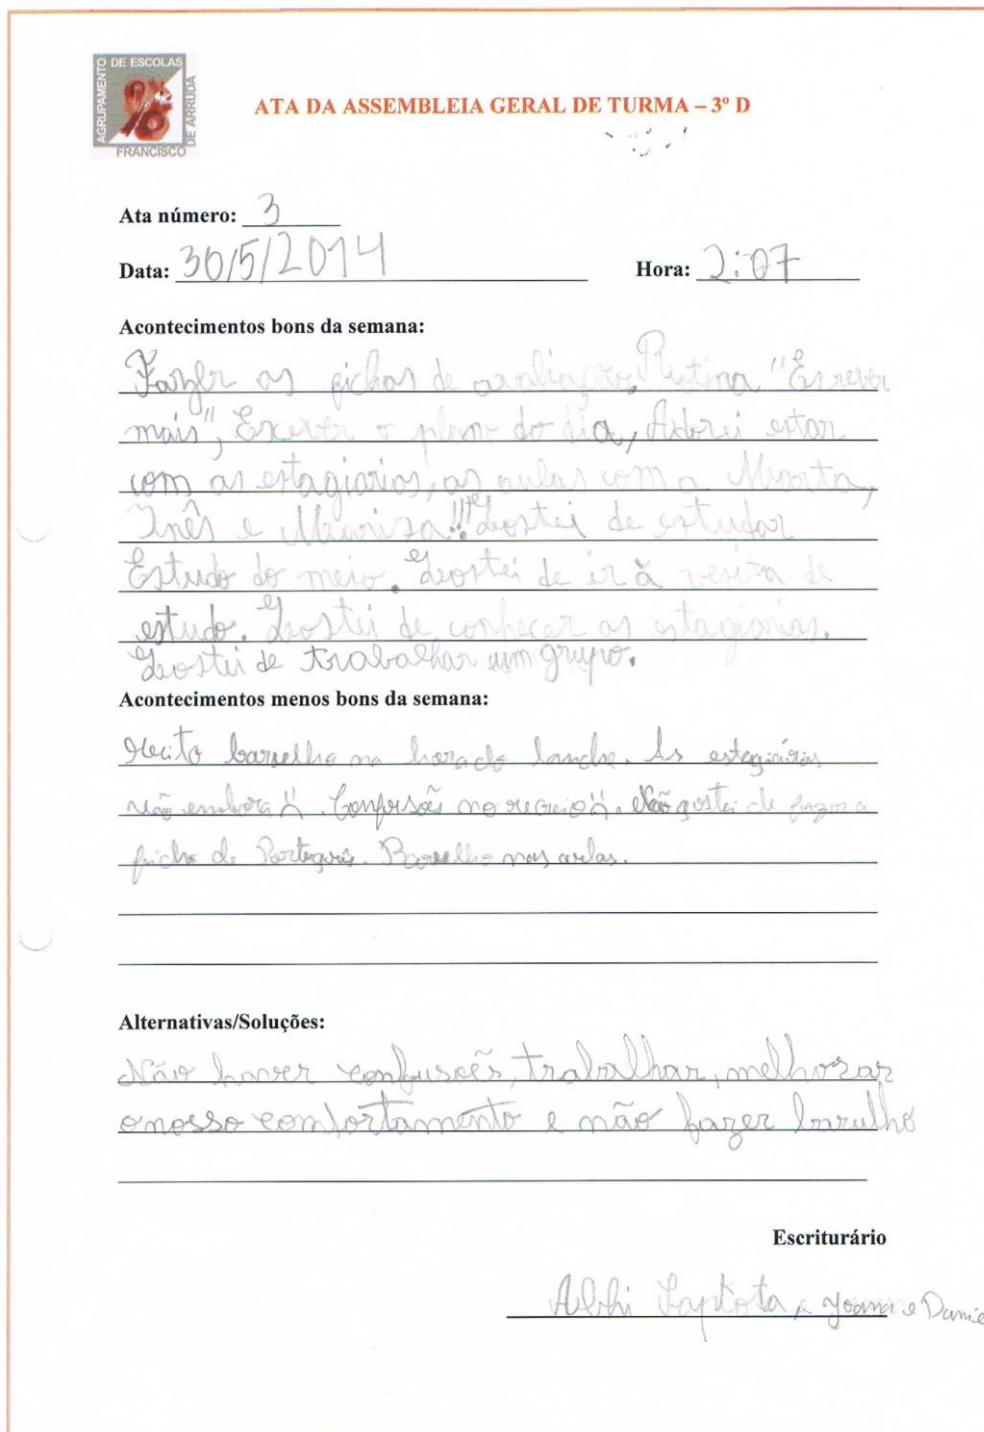 AGRUPAMENTO DE ESCOLAS
FRANCISCO DE ARRUDA
ATA DA ASSEMBLEIA GERAL DE TURMA – 3º D
Ata número: 3
Data: 30/5/2014 Hora: 2:07
Acontecimentos bons da semana:
Fazer as fichas de avaliação, Rotina "Escrever
mais", Escrever o plano do dia, Adorei estar
com as estagiarias, as aulas com a Marta,
Inês e Mariza!!! Gostei de estudar
Estudo do meio. Gostei de ir à visita de
estudo. Gostei de conhecer as estagiárias.
Gostei de trabalhar um grupo.
Acontecimentos menos bons da semana:
barulho na hora do lanche. As estagiárias
embora. Confusões no recreio. Não gostei de fazer a
ficha de Português. Barulho nas aulas.
Alternativas/Soluções:
Não haver confusões, trabalhar, melhorar
o nosso comportamento e não fazer barulho
Escriturário
Joana e Danie